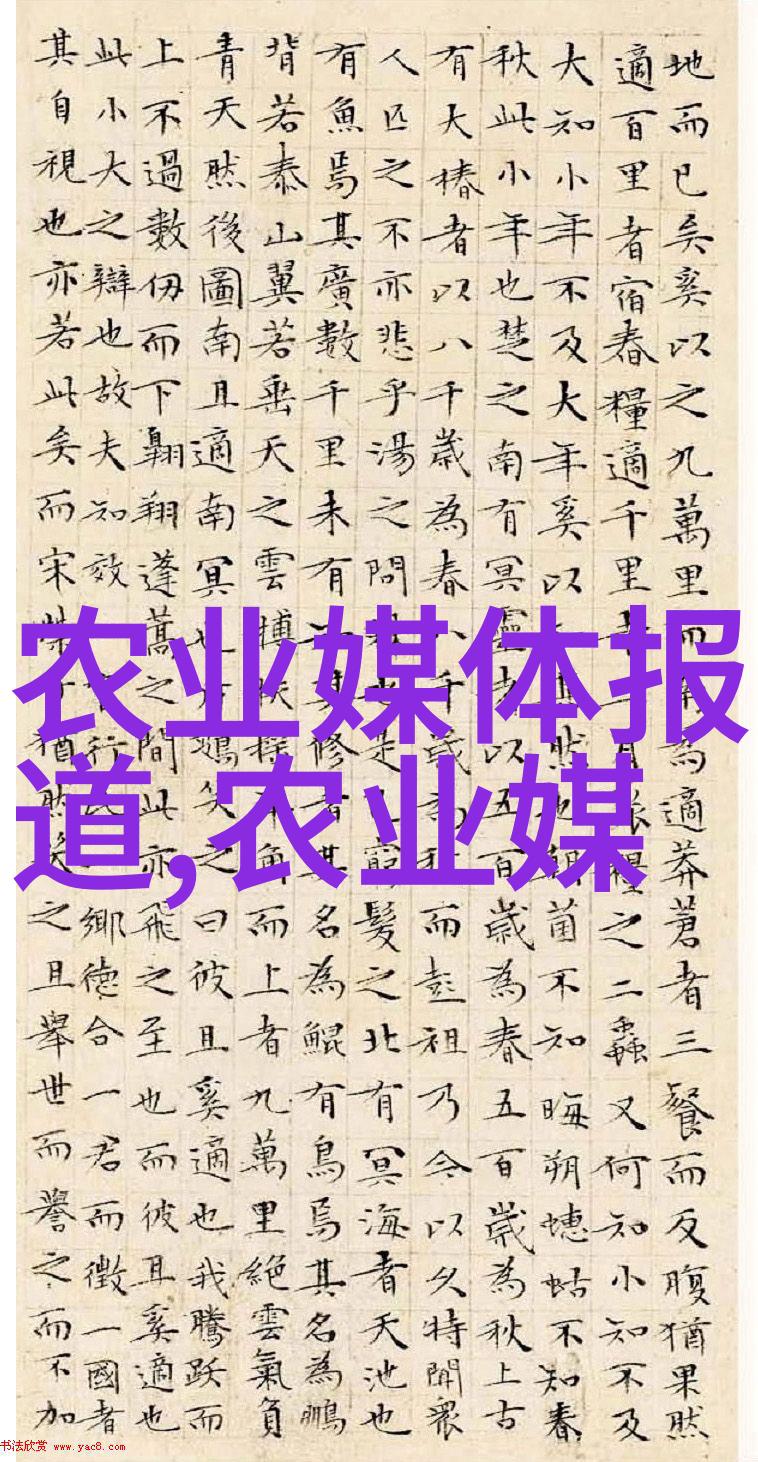 地而已矣奚以之九萬里而為適莽蒼者三餐而反腹猶果然
適百里者宿舂糧適千里月糧之二蟲又何知小知不及
大知小年不及大年奚以然也朝菌不知晦朔蟪蛄不知春
秋此小年也楚之南有冥靈者以五百歲為春五百歲為秋上古
有大椿者以八千歲為春八千歲為秋而彭祖乃今以久特聞眾
人匹之不亦悲乎湯之問也是窮髮之北有冥海者天池也
有魚焉其廣數千里未有其修者其名為鯤有鳥焉其名為鵬
背若泰山翼若垂天之雲摶扶搖羊角而上者九萬里絕雲氣負
青天然後圖南且適南冥也斥鴳笑之曰彼且奚適也我騰躍而
上不過數仞而下翱翔蓬蒿之間此亦飛之至也而彼且奚適也
此小大之辯也故夫知效官行鄉德合一君而徵一國者
其自視也亦若此矣而宋榮子猶然笑之且舉世而譽之而不加
农业媒体报
道,农业媒
书法欣赏 www.yac8.com